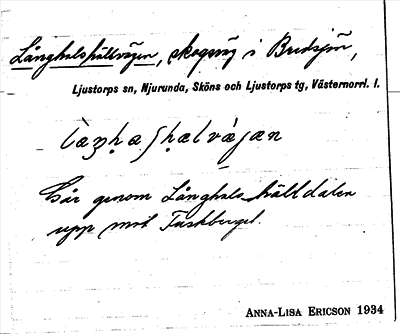 Långhalshällvägen, skogsväg i Bredsjön,
Ljustorps sn, Njurunda, Sköns och Ljustorps tg, Västernorrl. l.
Går genom Långhals_hälldalen
upp mot
ANNA-LISA ERICSON 1934